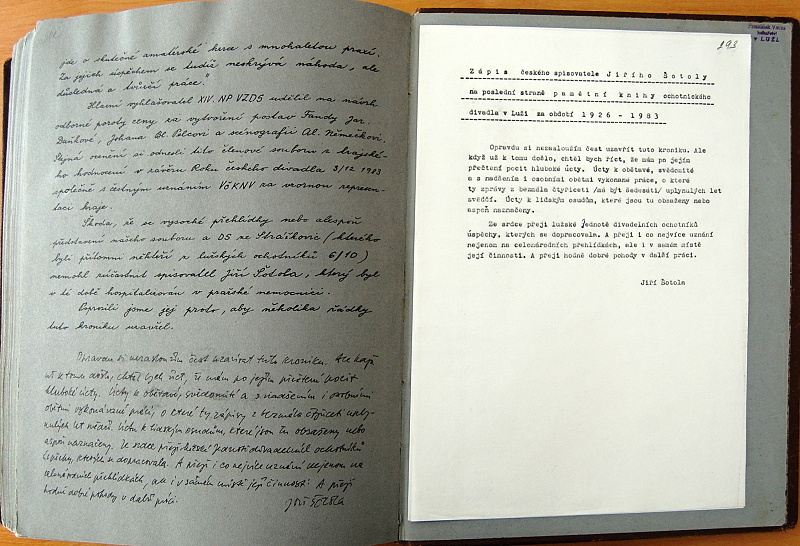 jde o skutečné amatérské herce s mnohaletou praxí.
Za jejich úspěchem se tudíž neskrývá náhoda, ale
důsledná a tvořivá práce."
Hlavní vyhlašovatel XIV. NP VZDS udělil na návrh
odborné poroty ceny za vytvoření postav Fandy Jar.
Daňkové, Johana Bl. Pelcovi a scénografii Al. Němečkovi.
Stejná ocenění si odnesli tito členové souboru z krajské-
ho hodnocení v závěru Roku českého divadla 3/12 1983
společně s čestným uznáním VčKNV za vzornou represen-
taci kraje.
Škoda, že se vysocké přehlídky nebo alespoň
představení našeho souboru a DS ze Straškovic (kterého
byli přítomni někteří z lužských ochotníků 6/10)
nemohl zúčastnit spisovatel Jiří Šotola, který byl
v té době hospitalizován v pražské nemocnici.
Poprosili jsme jej proto, aby několika řádky
tuto kroniku uzavřel.
Opravdu si nezasloužím čest uzavírat tuto kroniku. Ale když
už k tomu došlo, chtěl bych říct, že mám po jejím přečtení pocit
hluboké úcty. Úcty k obětavé, svědomité a s nadšením i osobními
obětmi vykonávané práci, o které ty zápisy z bezmála čtyřiceti uply-
nulých let svědčí. Úcty k lidským osudům, které jsou tu obsaženy nebo
aspoň naznačeny. Ze srdce přeji lužské Jednotě divadelních ochotníků
úspěchy, kterých se dopracovala. A přeji i co nejvíce uznání nejenom na
celonárodních přehlídkách, ale i v samém místě její činnosti. A přeji
hodně dobré pohody v další práci.
Jiří Šotola
293
v LUŽI
Zápis českého spisovatele Jiřího Šotoly
na poslední straně pamětní knihy ochotnického
divadla v Luži za období 1926 - 1983
Opravdu si nezasloužím čest uzavřít tuto kroniku. Ale
když už k tomu došlo, chtěl bych říct, že mám po jejím
přečtení pocit hluboké úcty. Úcty k obětavé, svědomité
a s nadšením i osobní obětí vykonané práce, o které
ty zprávy z bezmála čtyřiceti /má být šedesáti/ uplynulých let
svědčí. Úcty k lidským osudům, které jsou tu obsaženy nebo
aspoň naznačeny.
Ze srdce přeji lužské Jednotě divadelních ochotníků
úspěchy, kterých se dopracovala. A přeji i co nejvíce uznání
nejenom na celonárodních přehlídkách, ale i v samém místě
její činnosti. A přeji hodně dobré pohody v další práci.
Jiří Šotola